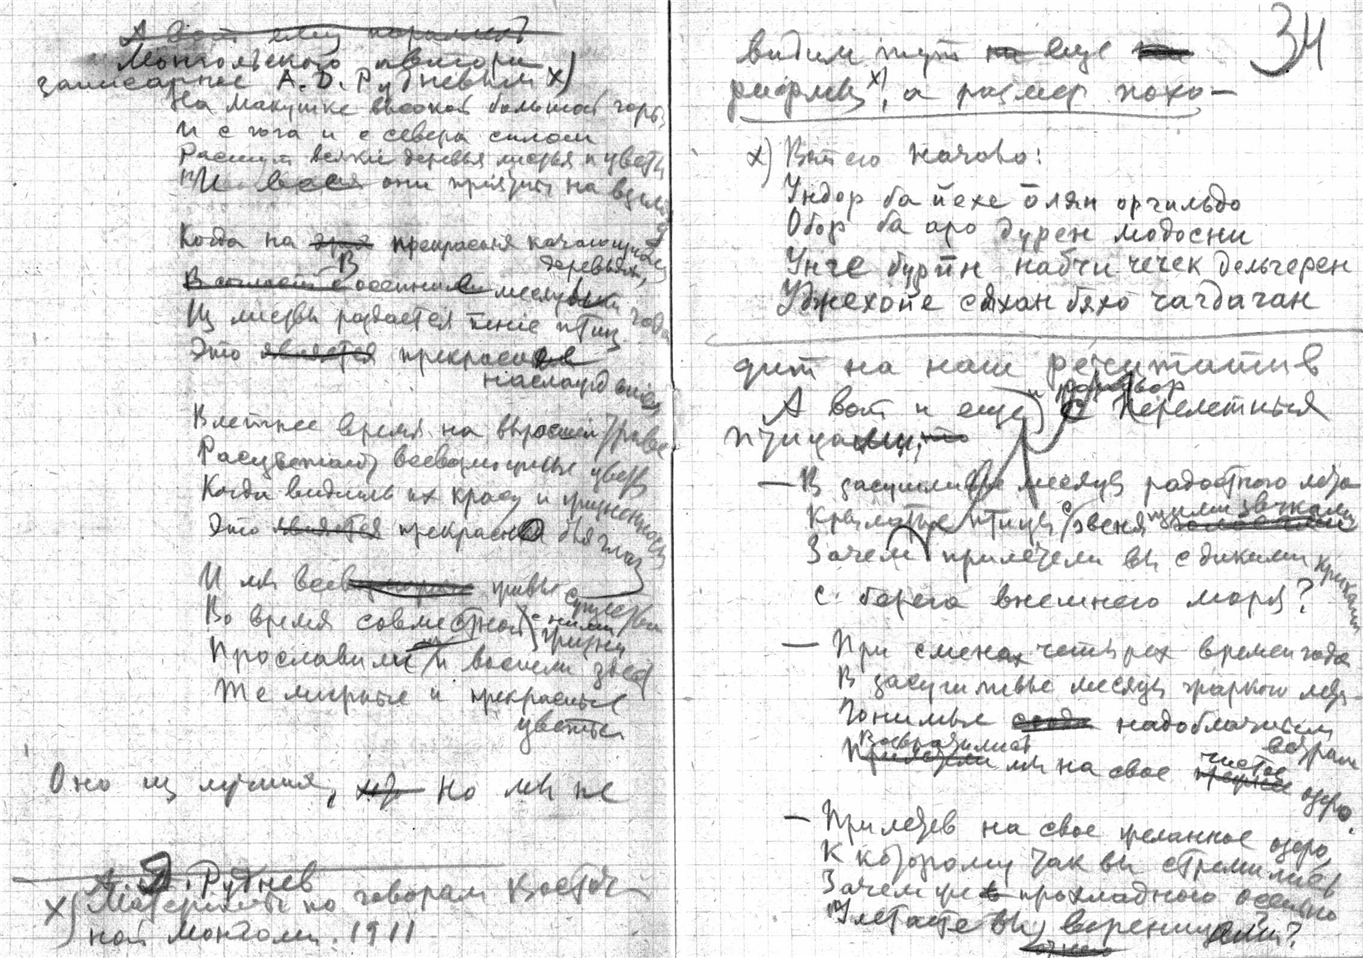 А вот ему параллель
Монгольского автора
записанное А. Д. Рудневым х)
На макушке высокой большой горы
И с юга и с севера силои
Растут всякие деревья листья и цветы
И они приятны на взгляд
Когда на прекрасныя качающияся
деревьях,
В осенние месяцы года
Из листвы раздается пенiе птиц
Это является прекрасное
наслаждение
В летнее время на выросшей траве
Расцветают всевозможные цветы
Когда видишь их красу и
Это является прекрасно для глаз
И мы все живые существа
Во время совместной с ними
жизни
Прославим и воспеем
Те мирные и прекрасные
цветы
Оно из лучших, но мы не
А. Д. Руднев
х) Материалы по говорам Восточ-
ной Монголи. 1911
34
видим тут еще
рифмы х), а размер похо-
х) Вот его начово:
Ундор ба йехе олян орчильдо
Обор ба аро дурен модосни
Унге бурин набчи чечек дельгерен
Уджехойе сяхан бяхо чагдачан
дит на наш речитатив
А вот и еще разговор с перелетныя
птицами,
— В засушливые месяцы радостного лета
Крылатые птицы с звенящими звуками
Зачем прилетели вы с дикими криками
с берега внешнего моря?
— При сменах четырех времен года
В засушливые месяцы жаркого лета
Гонимые надоблачным
ветром
Возвратились
Прилетели мы на свое чистое озеро.
— Прилетев на свое желанное озеро,
К которому так вы стремились
Зачем же прохладною осенью
Улетаете вы вереницами?